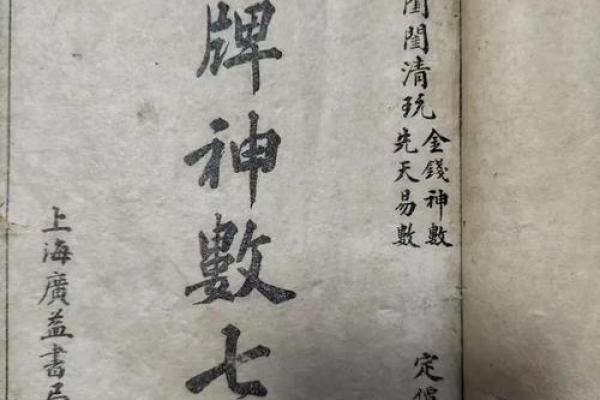 閨閣清玩
金錢神數
先天易數
定價
牌神數七
上海廣益書局